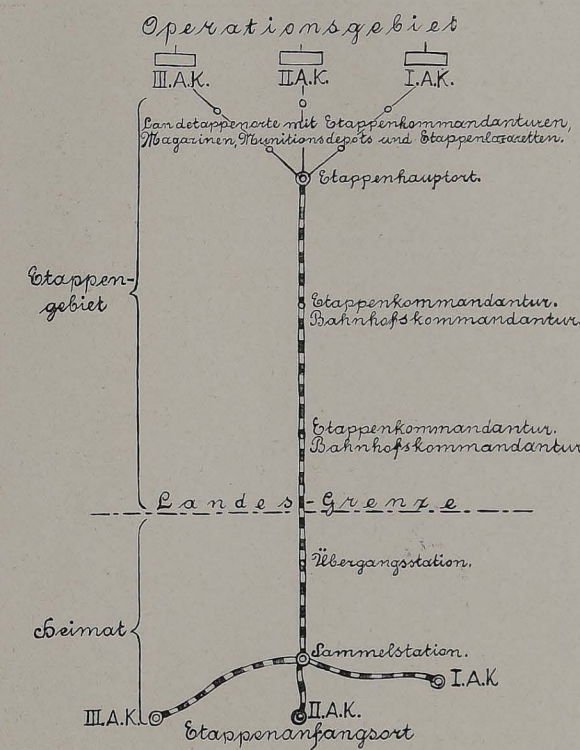 Operationsgebiet
III.A.K. II.A.K. I.A.K.
Landetappenorte mit Etappenkommandanturen,
Magazinen, Munitionsdepots und Etappenlazaretten.
Etappenhauptort.
Etappen-
gebiet
Etappenkommandantur.
Bahnhofskommandantur.
Etappenkommandantur.
Bahnhofskommandantur
Landes-Grenze
Übergangsstation.
Heimat
Sammelstation.
I.A.K
III.A.K. II.A.K.
Etappenanfangsort